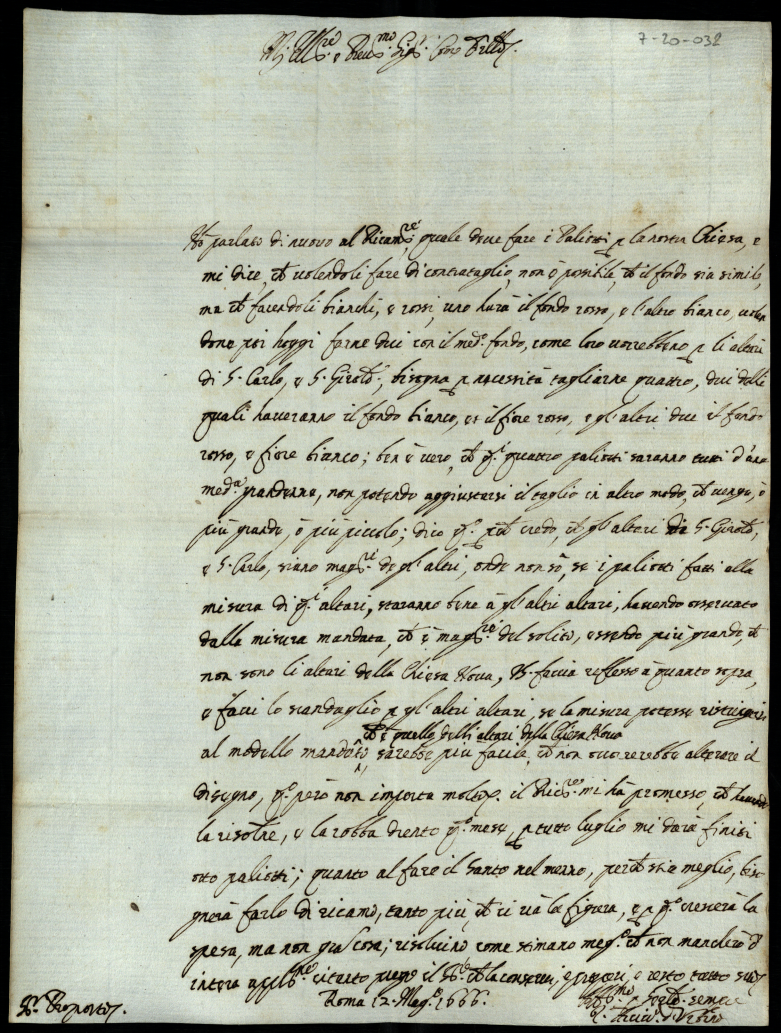 7-20-032
M. Ill.re e Rev.mo Sig.r Prone Oss.mo
Hò parlato di nuovo al Ricam.re, quale deve fare i Paliotti p la nostra Chiesa, e
mi dice, ch volendoli fare di contrataglio, non è possibile, ch il fondo sia simile,
ma ch facendoli bianchi, e rossi, uno havrà il fondo rosso, e l'altro bianco, volen
done poi hoggi farne dui con il med.o fondo, come loro vorrebbono p li altari
di S. Carlo, e S. Girol.o, bisogna p necessità tagliarne quattro, dui delli
quali haveranno il fondo bianco, et il fiore rosso, e gl'altri due il fondo
rosso, e fiore bianco; ben è vero, ch q.i quattro paliotti saranno tutti d'una
med.a grandezza, non potendo aggiustarsi il taglio in altro modo, ch venga, ò
più grande, ò più piccolo; dico q.o pch credo, ch gl'altari di S. Girol.o,
e S. Carlo, siano magg.ri degl'altri, onde non sò, se i paliotti fatti alla
misura di q.i altari, staranno bene à gl'altri altari, havendo osservato
dalla misura mandata, ch è magg.re del solito, essendo più grande, ch
non sono li altari della Chiesa Nova, VS. faccia riflesso à quanto sopra,
e facci lo scandaglio p gl'altri altari, se la misura potesse ristringersi
ch è quello delli altari della Chiesa Nova
al modello mandato, sarebbe più facile, ch non occorerebbe alterare il
disegno, q.o però non importa molto. il Ric.re mi hà promesso, ch havendo
la risol.ne, e la robba drento q.o mese, p tutto luglio mi darà finiti
otto paliotti; quanto al fare il Santo nel mezzo, perch stia meglio, biso
gnerà farlo di ricamo, tanto più, ch ci và la figura, e p q.o crescerà la
spesa, ma non gran cosa; risolvino come stimano meg.o ch non mancherò d'
intera applic.ne e intanto prego il Sig.re ch la conservi, e prosperi, e resto tutto suo
Roma 12. Mag.o 1666.